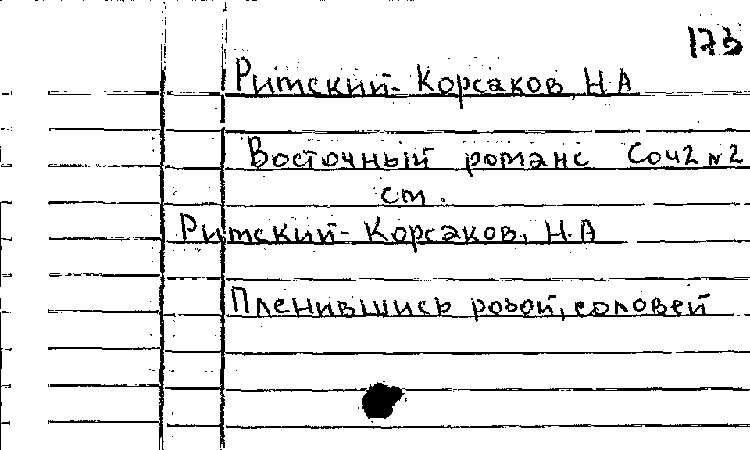 173
Римский-Корсаков, Н.А
Восточный романс Соч2 №2
см.
Римский-Корсаков, Н.А
Пленившись розой, соловей